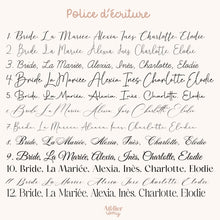 Police d'écriture
1. Bride, La Mariée, Alexia, Inès, Charlotte, Elodie
2. Bride, La Mariée, Alexia, Inès, Charlotte, Elodie
3. Bride, La Mariée, Alexia, Inès, Charlotte, Elodie
4. Bride La Mariée, Alexia Inès Charlotte Elodie
5. Bride, La Mariée, Alexia, Inès, Charlotte, Elodie
6. Bride, La Mariée, Alexia, Inès, Charlotte, Elodie
7. Bride, La Mariée, Alexia, Inès, Charlotte, Elodie
8. Bride, La Mariée, Alexia, Inès, Charlotte, Elodie
9. Bride, La Mariée, Alexia, Inès, Charlotte, Elodie
10. Bride, La Mariée, Alexia, Inès, Charlotte, Elodie
11. Bride, La Mariée, Alexia, Inès, Charlotte, Elodie
12. Bride, La Mariée, Alexia, Inès, Charlotte, Elodie
Atelier